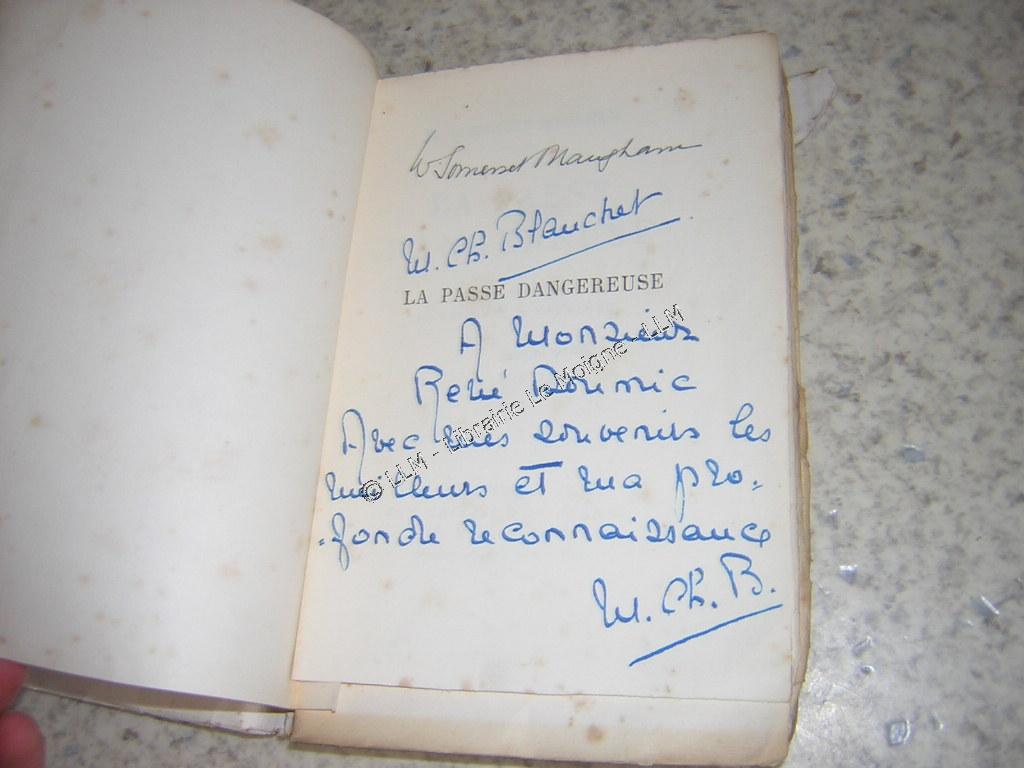 W Somerset Maugham
M. Ch. Blanchet
LA PASSE DANGEREUSE
A Monsieur
René Doumic
Avec mes souvenirs les
meilleurs et ma pro-
-fonde reconnaissance
M. Ch. B.
© LLM - Librairie Le Moigne - LLM